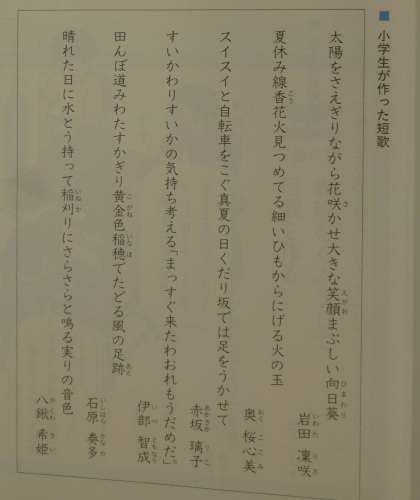 ■小学生が作った短歌
太陽をさえぎりながら花咲かせ大きな笑顔まぶしい向日葵
岩田 凜咲
夏休み線香花火見つめてる細いひもからにげる火の玉
奥 桜心美
スイスイと自転車をこぐ真夏の日くだり坂では足をうかせて
赤坂 璃子
すいかわりすいかの気持ち考える「まっすぐ来たわおれもうだめだ」
伊部 智成
田んぼ道みわたすかぎり黄金色稲穂でたどる風の足跡
石原 奏多
晴れた日に水とう持って稲刈りにさらさらと鳴る実りの音色
八鍬 希姫